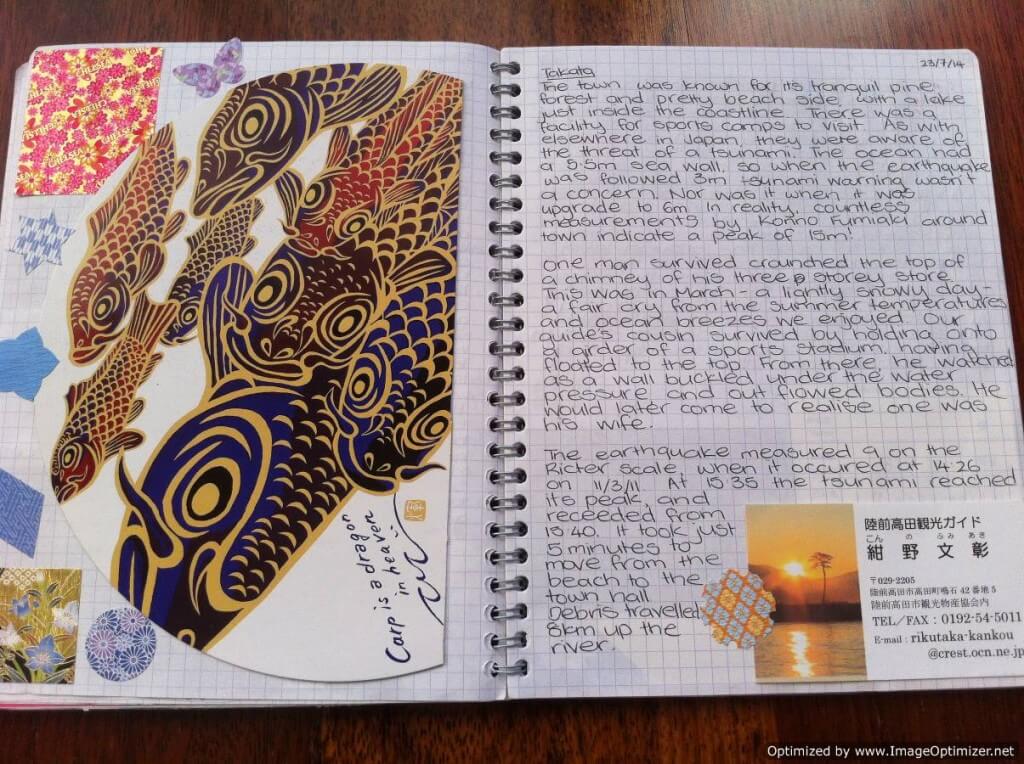 CHELSEA
CHELSEA
CHELSEA
CHELSEA
CHELSEA
Carp is a dragon
in heaven
23/7/14
Takata
The town was known for its tranquil pine
forest and pretty beach side, with a lake
just inside the coastline. There was a
facility for sports camps to visit. As with
elsewhere in Japan, they were aware of
the threat of a tsunami. The ocean had
a 5.5m sea wall, so when the earthquake
was followed 3m tsunami warning wasn't
a concern. Nor was when it was
upgrade to 6m. In reality, countless
measurements by Konno Fumiaki around
town indicate a peak of 15m!
One man survived crounched the top of
a chimney of his three storey store.
This was in March - a lightly snowy day -
a fair cry from the summer temperatures
and ocean breezes we enjoyed. Our
guides cousin survived by holding onto
a girder of a sports stadium, having
floated to the top. From there, he watched
as a wall buckled under the water
pressure and out flowed bodies. He
would later come to realise one was
his wife.
The earthquake measured 9 on the
Ricter scale, when it occured at 14:26
on 11/3/11. At 15:35 the tsunami reached
its peak, and
receeded from
15:40. It took just
5 minutes to
move from the
beach to the
town hall.
Debris travelled
8km up the
river.
陸前高田観光ガイド
こん の ふみ あき
紺野文彰
〒029-2205
陸前高田市高田町鳴石42番地5
陸前高田市観光物産協会内
TEL/FAX:0192-54-5011
E-mail:rikutaka-kankou
@crest.ocn.ne.jp
Optimized by www.ImageOptimizer.net